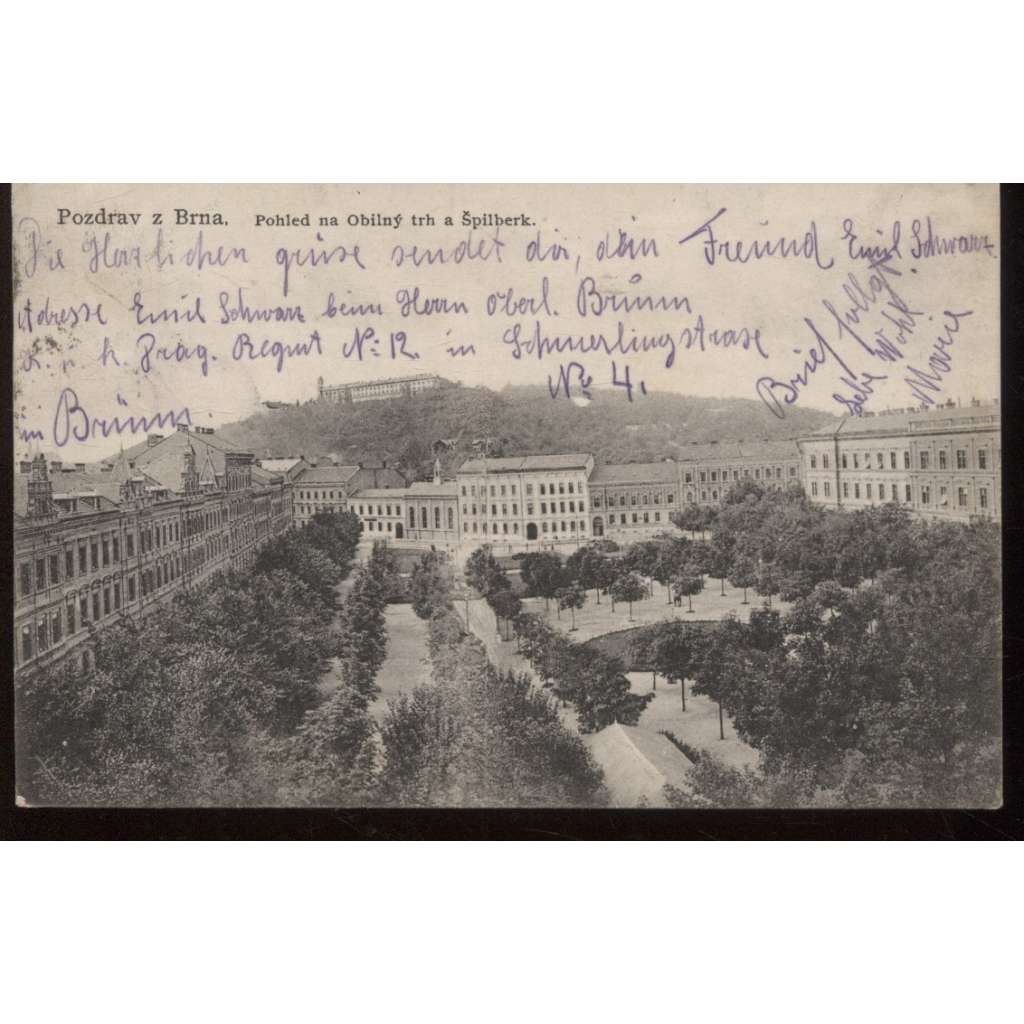 Pozdrav z Brna. Pohled na Obilný trh a Špilberk.
Die Herzlichen grüse sendet dir, dein Freund Emil Schwarz
Adresse Emil Schwarz beim Herrn Oberl. Brünn
k. u. k. Drag. Regmt No: 12. in Schmerlingstrase
No 4.
in Brünn.
Brief follgt
Lebe Wohl!
Marie